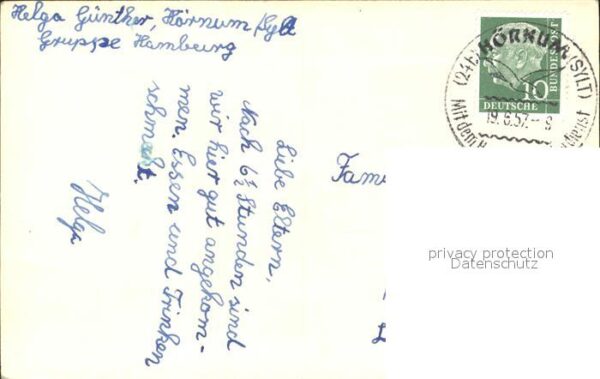 Helga Günther, Hörnum/Sylt
Gruppe Hamburg
Liebe Eltern,
Nach 6½ Stunden sind
wir hier gut angekom-
men. Essen und Trinken
schmeckt.
Helga
Fam
DEUTSCHE
BUNDESPOST
10
(24b) HÖRNUM (SYLT)
19.6.57.-8
Mit dem
dienst
privacy protection
Datenschutz